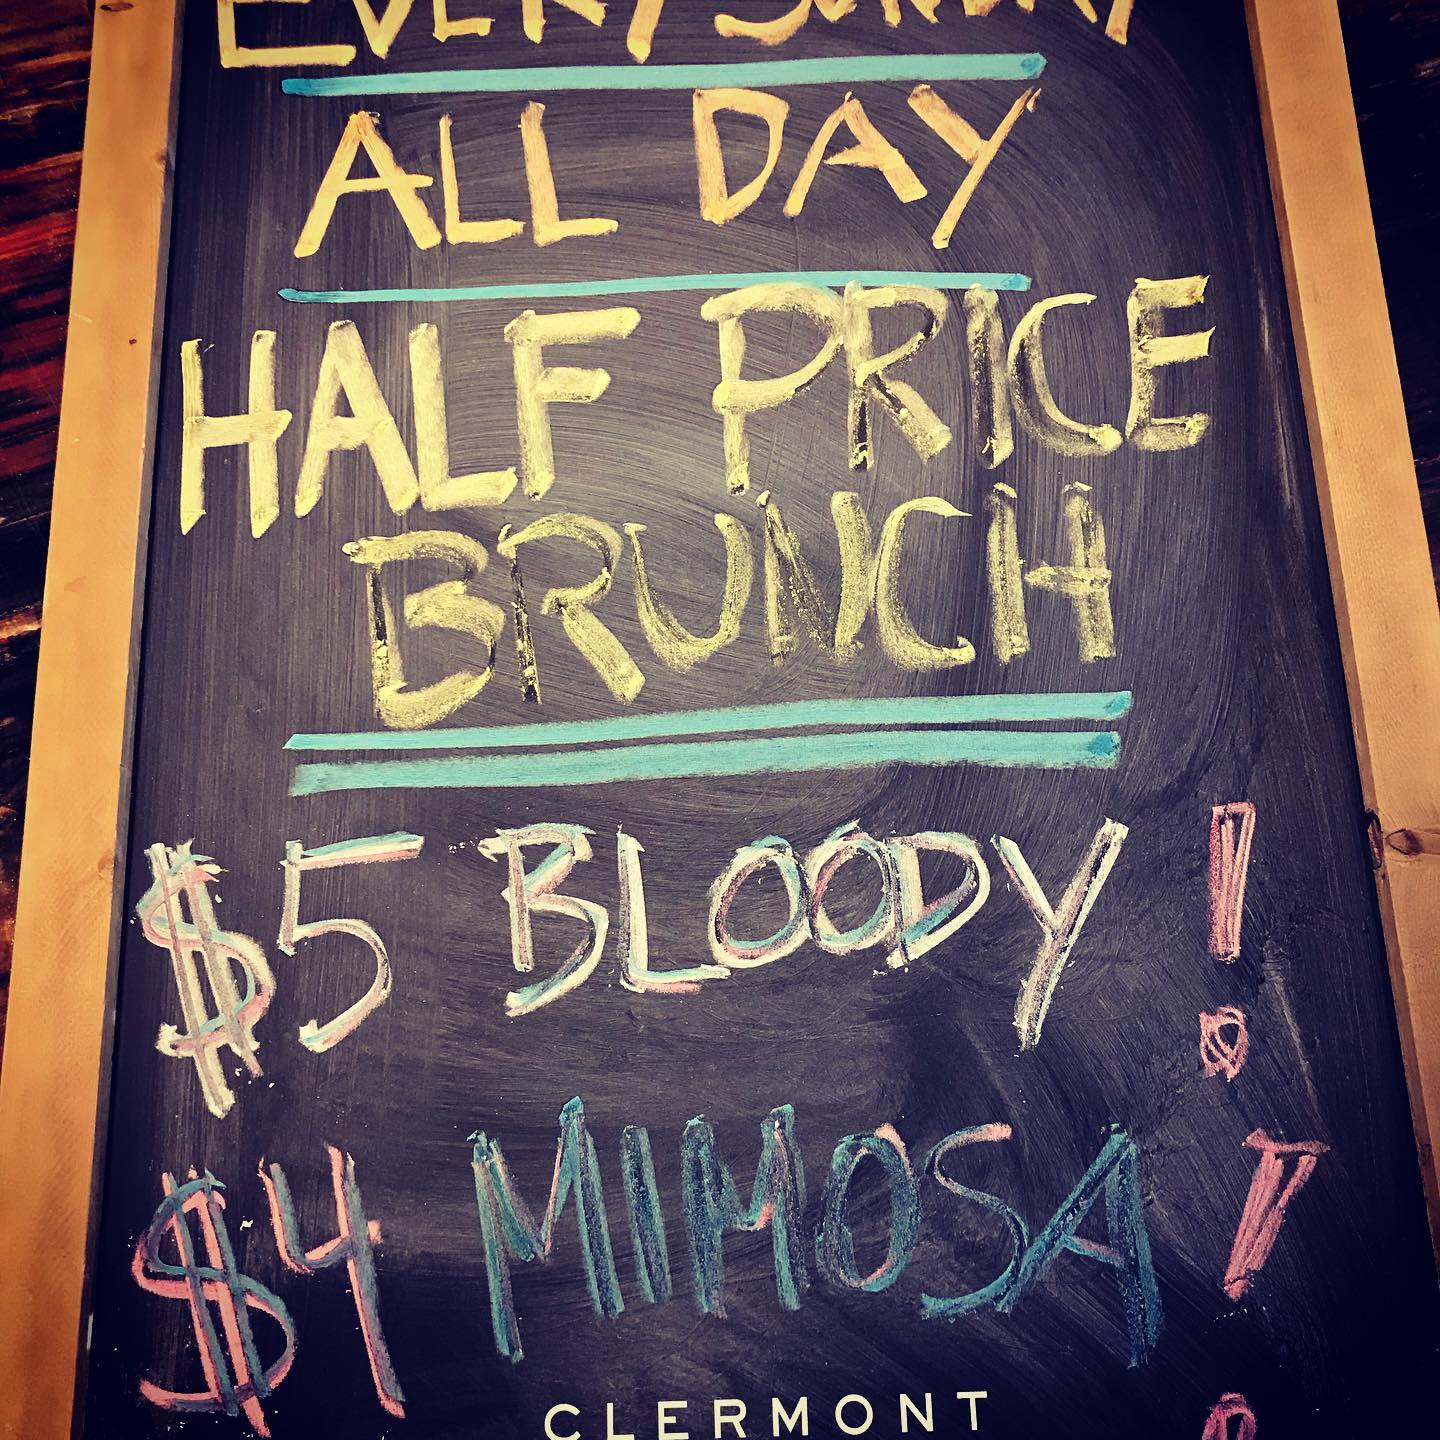 EVERY SUNDAY
ALL DAY
HALF PRICE
BRUNCH
$5 BLOODY !
$4 MIMOSA !
CLERMONT